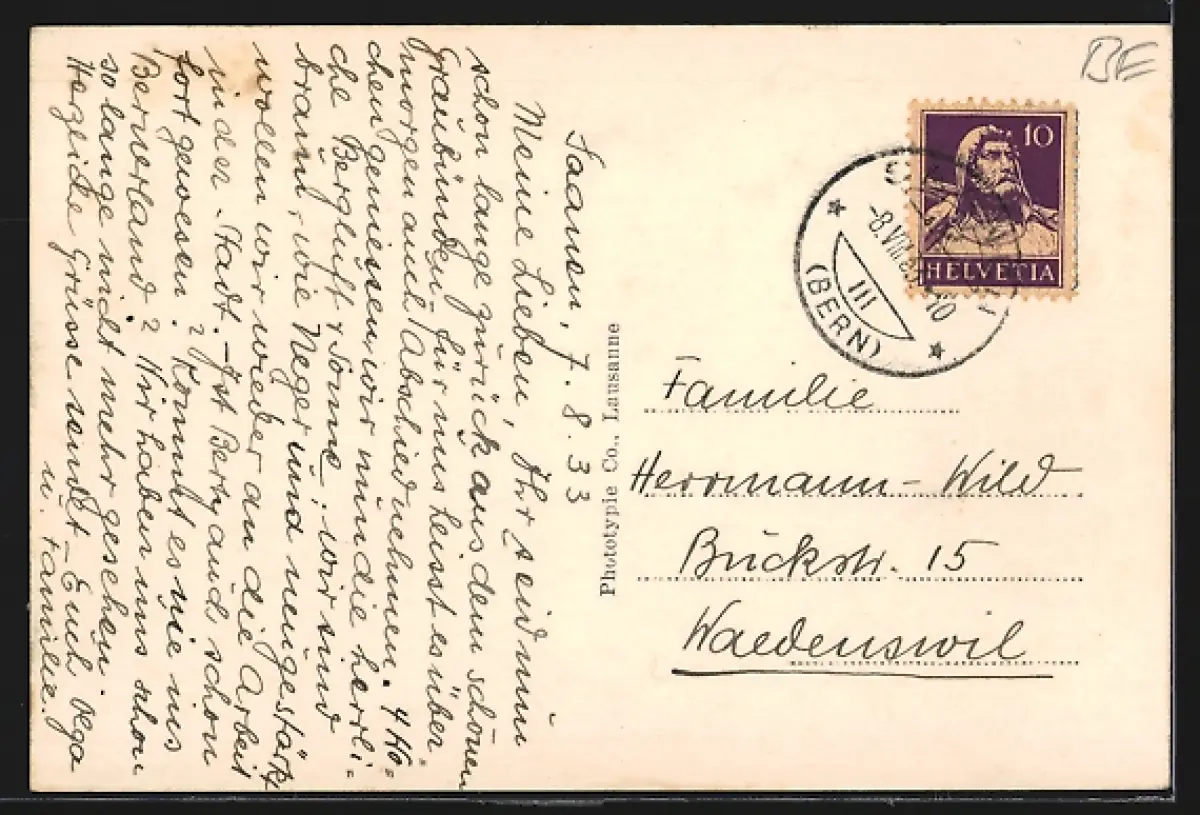 Saanen, 7. 8. 33
Meine Lieben, Ihr seid nun
schon lange zurück aus dem schönen
Graubünden, für uns heisst es über-
morgen auch Abschied nehmen. 4 Wo-
chen geniessen wir nun die herrli-
che Bergluft & Sonne, wir sind
braun, wie Neger und neugestärkt
wollen wir wieder an die Arbeit
in der Stadt. - Ist Berty auch schon
fort gewesen? Kommt es nie ins
Bernerland? Wir haben uns schon
so lange nicht mehr gesehen.
Herzliche Grüsse sendet Euch Olga
u. Familie.
Phototypie Co., Lausanne
BE
10
HELVETIA
-8.VIII.
10
III
(BERN)
Familie
Herrmann-Wild
Buckstr. 15
Waedenswil